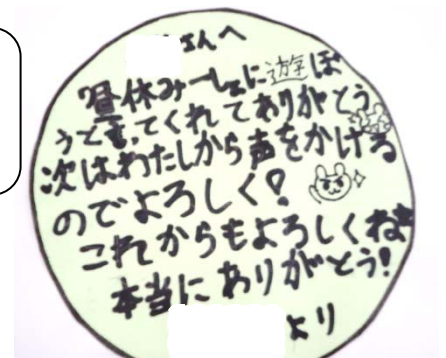 さんへ
昼休み一しょに遊ぼ
うと言ってくれてありがとう
次はわたしから声をかける
のでよろしく?
これからもよろしくね
本当にありがとう!
より